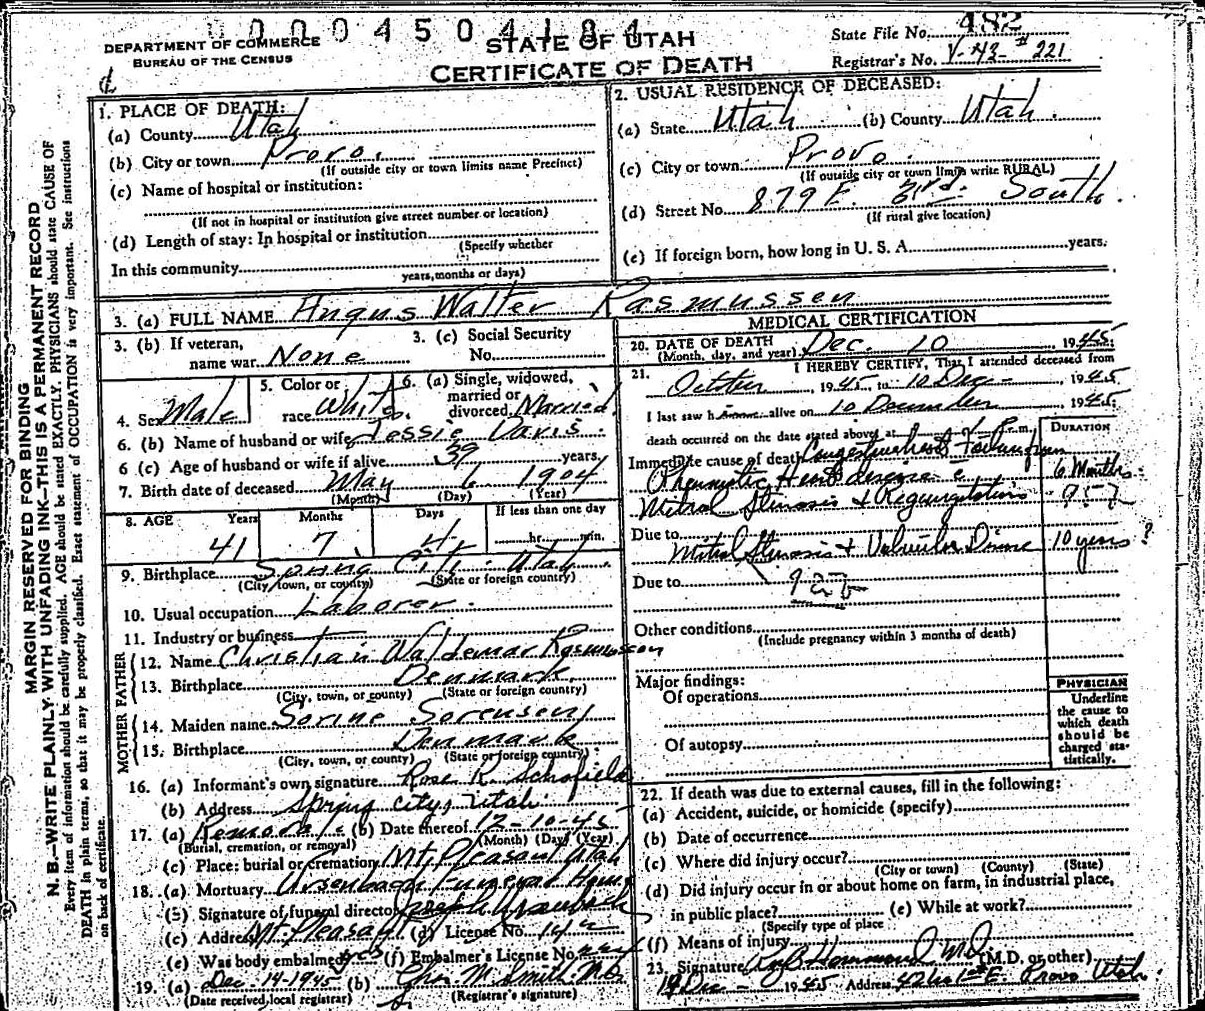 0 0 0 4 5 0 4 1 8 4
DEPARTMENT OF COMMERCE
BUREAU OF THE CENSUS
STATE OF UTAH
CERTIFICATE OF DEATH
State File No. 482
Registrar's No. V-43-#221
MARGIN RESERVED FOR BINDING
N. B.—WRITE PLAINLY, WITH UNFADING INK—THIS IS A PERMANENT RECORD
Every item of information should be carefully supplied. AGE should be stated EXACTLY. PHYSICIANS should state CAUSE OF
DEATH in plain terms, so that it may be properly classified. Exact statement of OCCUPATION is very important. See instructions
on back of certificate.
1. PLACE OF DEATH:
(a) County Utah
(b) City or town Provo.
(If outside city or town limits name Precinct)
(c) Name of hospital or institution:
(If not in hospital or institution give street number or location)
(d) Length of stay: In hospital or institution
(Specify whether
In this community
years, months or days)
2. USUAL RESIDENCE OF DECEASED:
(a) State Utah (b) County Utah.
(c) City or town Provo.
(If outside city or town limits write RURAL)
(d) Street No. 879 E. 3rd. South.
(If rural give location)
(e) If foreign born, how long in U. S. A. years.
3. (a) FULL NAME Angus Walter Rasmussen
3. (b) If veteran,
name war None
3. (c) Social Security
No.
4. Sex Male
5. Color or
race White.
6. (a) Single, widowed,
married or
divorced Married.
6. (b) Name of husband or wife Jessie Davis.
6 (c) Age of husband or wife if alive 39 years.
7. Birth date of deceased May 6 1904
(Month) (Day) (Year)
8. AGE Years Months Days If less than one day
41 7 4 hr. min.
9. Birthplace Spring City. Utah.
(City, town, or county) (State or foreign country)
10. Usual occupation Laborer.
11. Industry or business
FATHER
12. Name Christian Waldemar Rasmussen
13. Birthplace Denmark.
(City, town, or county) (State or foreign country)
MOTHER
14. Maiden name Sorine Sorensen
15. Birthplace Denmark
(City, town, or county) (State or foreign country)
16. (a) Informant's own signature Rose R. Schofield
(b) Address Spring City, Utah.
17. (a) Removal (b) Date thereof 12-10-45
(Burial, cremation, or removal) (Month) (Day) (Year)
(c) Place: burial or cremation Mt. Pleasant Utah
18. (a) Mortuary Ursenbach Funeral Home
(b) Signature of funeral director Ursenbach
(c) Address Mt. Pleasant (d) License No.
(e) Was body embalmed yes (f) Embalmer's License No.
19. (a) Dec-14-1945 (b) Chr. M. Smith M.D.
(Date received local registrar) (Registrar's signature)
MEDICAL CERTIFICATION
20. DATE OF DEATH Dec. 10, 1945.
(Month, day, and year)
21. I HEREBY CERTIFY, That I attended deceased from
October, 1945 to 10 Dec-, 1945
I last saw h alive on 10 December, 1945
death occurred on the date stated above at P. m.
DURATION
Immediate cause of death Congestive heart Failure from
Rheumatic Heart disease c 6 Months.
Mitral Stenosis & Regurgitation 95-2
Due to Mitral Stenosis & Valvular Disease 10 years ?
Due to 92b
Other conditions
(Include pregnancy within 3 months of death)
Major findings:
Of operations
Of autopsy
PHYSICIAN
Underline
the cause to
which death
should be
charged sta-
tistically.
22. If death was due to external causes, fill in the following:
(a) Accident, suicide, or homicide (specify)
(b) Date of occurrence
(c) Where did injury occur?
(City or town) (County) (State)
(d) Did injury occur in or about home on farm, in industrial place,
in public place? (e) While at work?
(Specify type of place
(f) Means of injury
23. Signature Hammond M.D. (M.D. or other)
14 Dec- 1945 Address 42 No 1st E. Provo Utah.